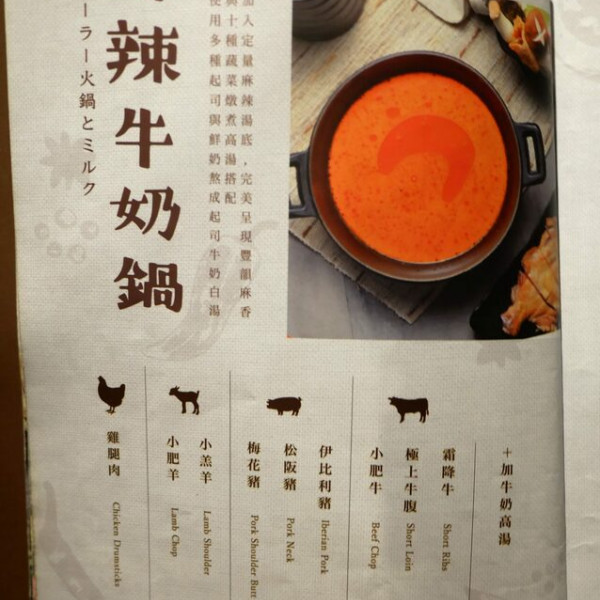 加入定量麻辣湯底，完美呈現豐韻麻香
與十種蔬菜燉煮高湯搭配
使用多種起司與鮮奶熬成起司牛奶白湯
辣牛奶鍋
ーラー火鍋とミルク
＋加牛奶高湯
霜降牛 Short Ribs
極上牛腹 Short Loin
小肥牛 Beef Chop
伊比利豬 Iberian Pork
松阪豬 Pork Neck
梅花豬 Pork Shoulder Butt
小羔羊 Lamb Shoulder
小肥羊 Lamb Chop
雞腿肉 Chicken Drumsticks